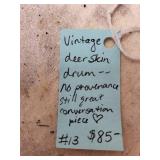 Vintage
deer skin
drum --
no provenance
still great
conversation
piece ♡
#13 $85-